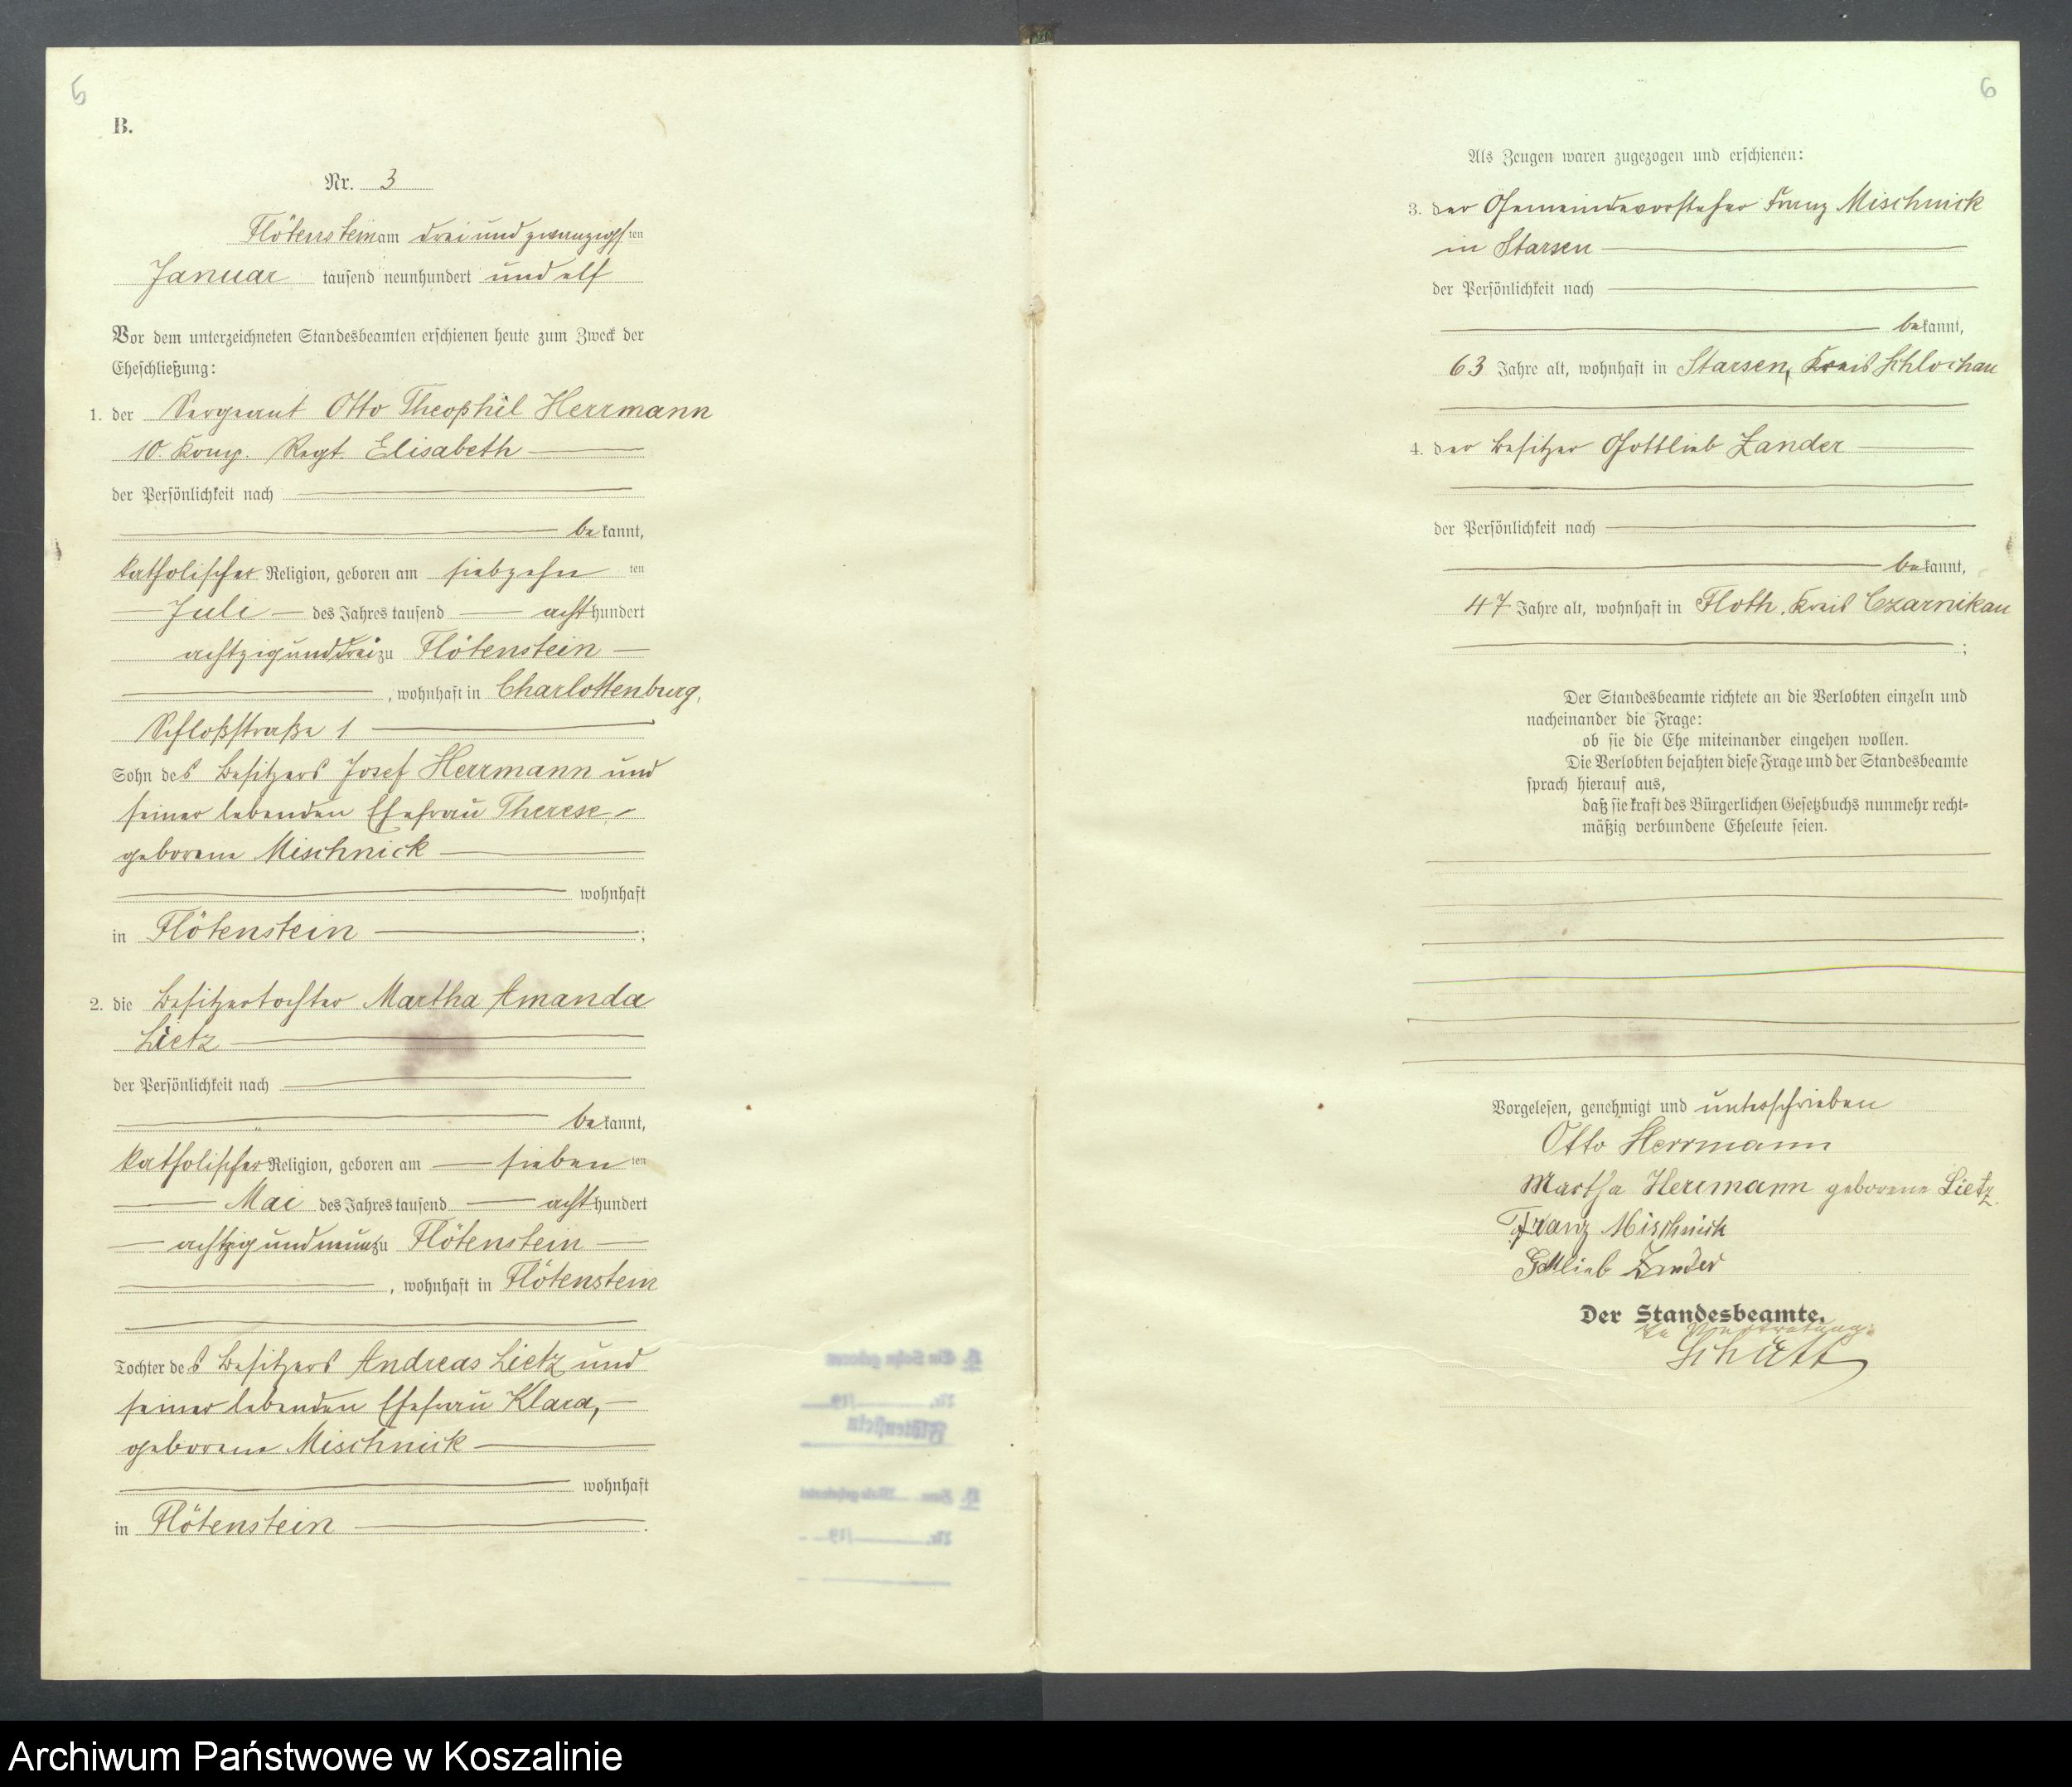 5
B.
Nr. 3
Flötenstein am drei und zwanzigsten
Januar tausend neunhundert und elf
Vor dem unterzeichneten Standesbeamten erschienen heute zum Zweck der
Eheschließung:
1. der Sergeant Otto Theophil Herrmann
10. Komp. Regt. Elisabeth
der Persönlichkeit nach
bekannt,
katholischer Religion, geboren am siebzehnten
Juli des Jahres tausend achthundert
achtzig und drei zu Flötenstein
, wohnhaft in Charlottenburg,
Schloßstraße 1
Sohn des Besitzers Josef Herrmann und
seiner lebenden Ehefrau Therese
geborene Mischnick
wohnhaft
in Flötenstein ;
2. die Besitzertochter Martha Amanda
Lietz
der Persönlichkeit nach
bekannt,
katholischer Religion, geboren am siebenten
Mai des Jahres tausend achthundert
achtzig und neun zu Flötenstein
, wohnhaft in Flötenstein
Tochter des Besitzers Andreas Lietz und
seiner lebenden Ehefrau Klara,
geborene Mischnick
wohnhaft
in Flötenstein .
6
Als Zeugen waren zugezogen und erschienen:
3. der Gemeindevorsteher Franz Mischnick
in Starsen
der Persönlichkeit nach
bekannt,
63 Jahre alt, wohnhaft in Starsen, Kreis Schlochau
4. der Besitzer Gottlieb Zander
der Persönlichkeit nach
bekannt,
47 Jahre alt, wohnhaft in Floth, Kreis Czarnikau
;
Der Standesbeamte richtete an die Verlobten einzeln und
nacheinander die Frage:
ob sie die Ehe miteinander eingehen wollen.
Die Verlobten bejahten diese Frage und der Standesbeamte
sprach hierauf aus,
daß sie kraft des Bürgerlichen Gesetzbuchs nunmehr recht-
mäßig verbundene Eheleute seien.
Vorgelesen, genehmigt und unterschrieben
Otto Herrmann
Martha Herrmann geborene Lietz.
Franz Mischnick
Gottlieb Zander
Der Standesbeamte.
In Vertretung
Schütt
Archiwum Państwowe w Koszalinie